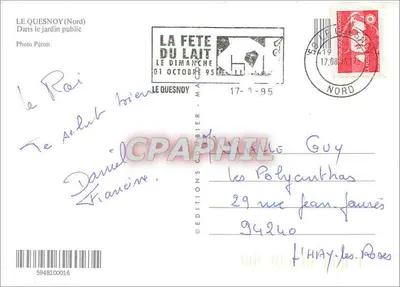 LE QUESNOY (Nord)
Dans le jardin public
Photo Péron
LA FETE
DU LAIT
LE DIMANCHE
01 OCTOBRE 95
LE QUESNOY
17- -95
59 LE
17.08.95
NORD
Le Roi
Te salut bien
Daniel
Francine.
CPAPHIL
EDITIONS
GUY
Les Polyanthas
29 rue Jean-Jaurès
94240
l'HAY-les-Roses
5948100016